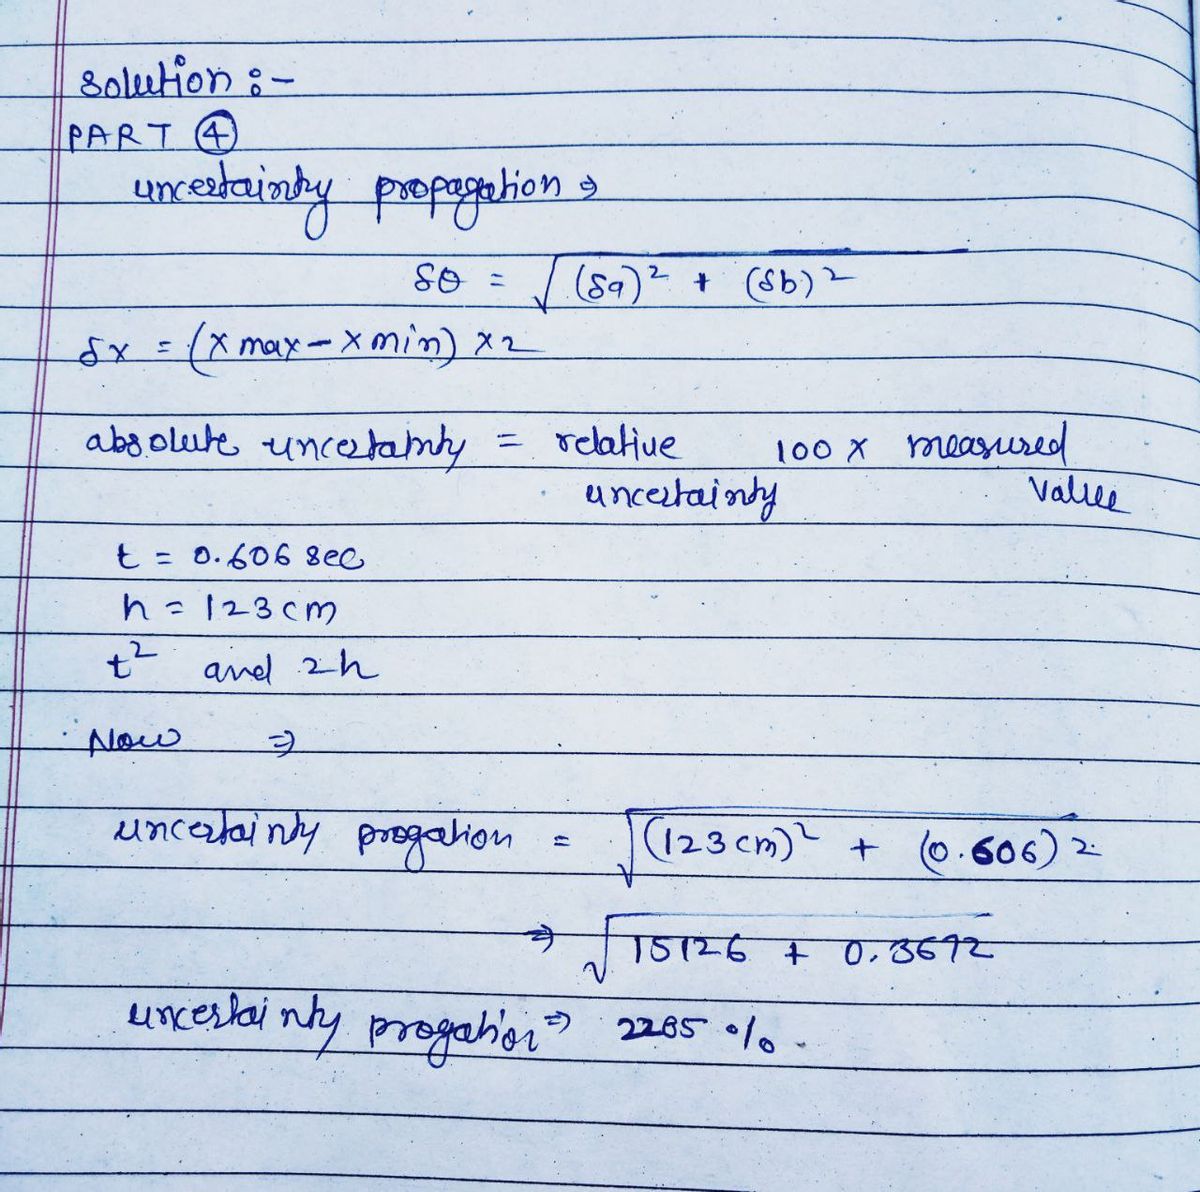 solution :-
PART ④
uncertainty propagation ⇒
δθ = √(δa)² + (δb)²
δx = (x max - x min) × 2
absolute uncertainty = relative 100 × measured
uncertainty value
t = 0.606 sec
h = 123 cm
t² and 2h
Now ⇒
uncertainty progation = √(123 cm)² + (0.606)²
⇒ √15126 + 0.3672
uncertainty progation ⇒ 2285 %.